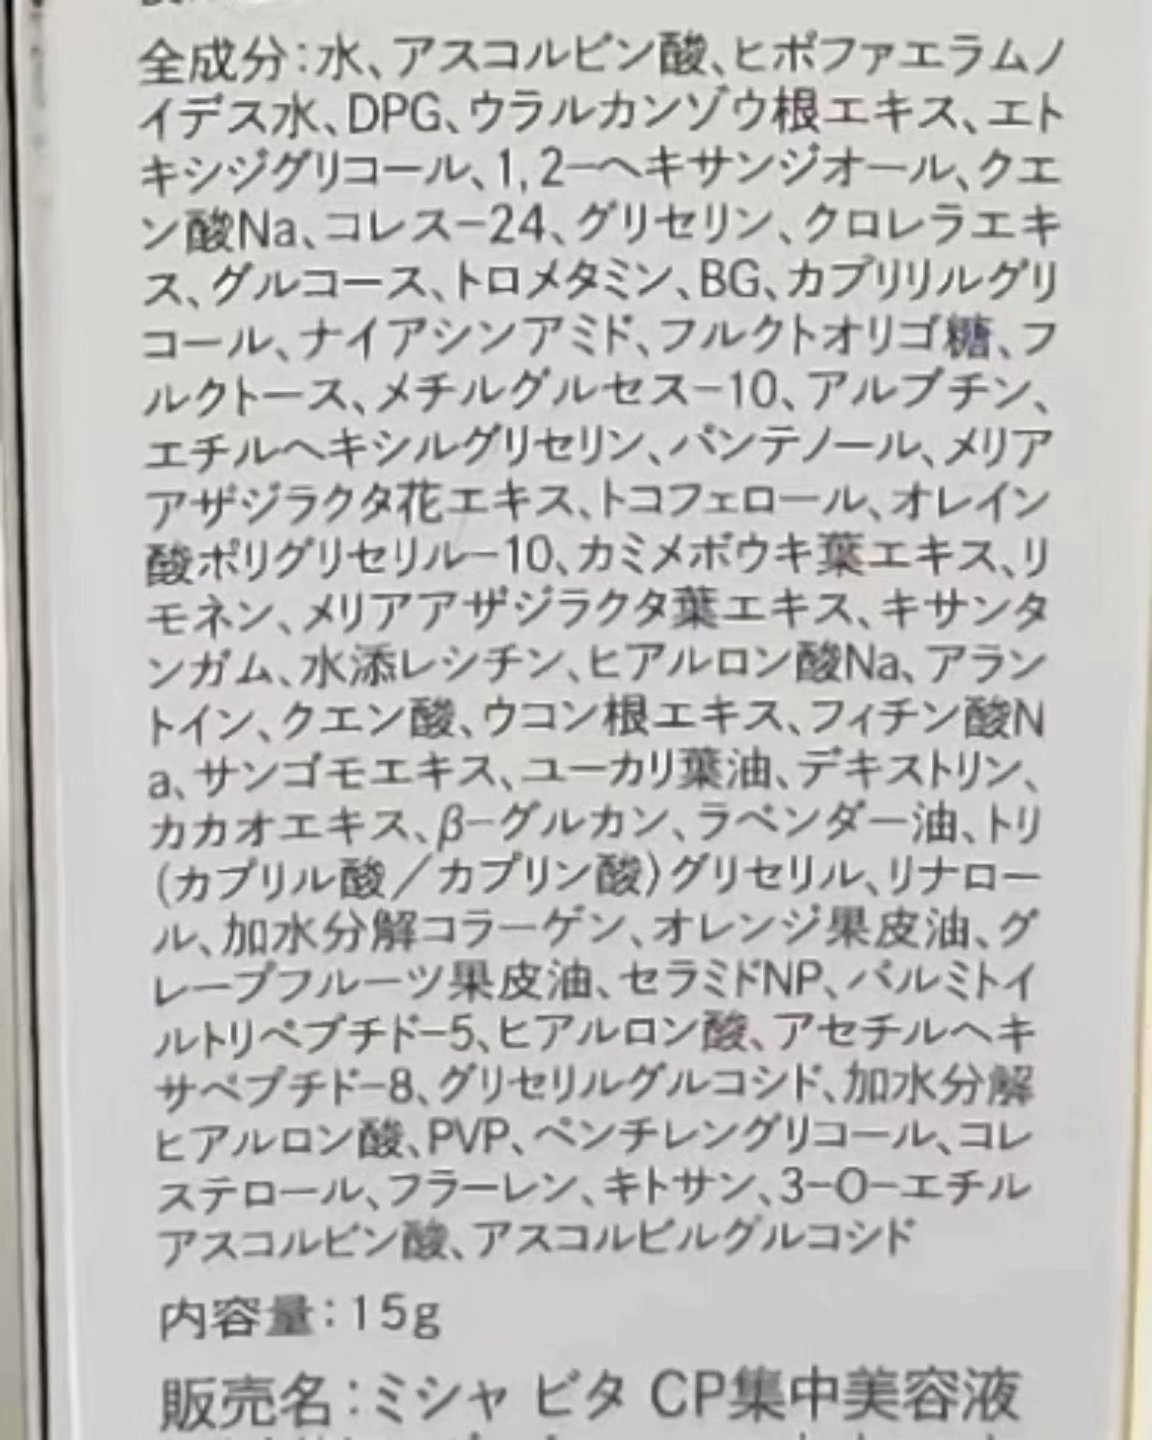 全成分：水、アスコルビン酸、ヒポファエラムノ
イデス水、DPG、ウラルカンゾウ根エキス、エト
キシジグリコール、1,2−ヘキサンジオール、クエ
ン酸Na、コレス−24、グリセリン、クロレラエキ
ス、グルコース、トロメタミン、BG、カプリリルグリ
コール、ナイアシンアミド、フルクトオリゴ糖、フ
ルクトース、メチルグルセス−10、アルブチン、
エチルヘキシルグリセリン、パンテノール、メリア
アザジラクタ花エキス、トコフェロール、オレイン
酸ポリグリセリル−10、カミメボウキ葉エキス、リ
モネン、メリアアザジラクタ葉エキス、キサンタ
ンガム、水添レシチン、ヒアルロン酸Na、アラン
トイン、クエン酸、ウコン根エキス、フィチン酸N
a、サンゴモエキス、ユーカリ葉油、デキストリン、
カカオエキス、β−グルカン、ラベンダー油、トリ
(カプリル酸／カプリン酸)グリセリル、リナロー
ル、加水分解コラーゲン、オレンジ果皮油、グ
レープフルーツ果皮油、セラミドNP、パルミトイ
ルトリペプチド−5、ヒアルロン酸、アセチルヘキ
サペプチド−8、グリセリルグルコシド、加水分解
ヒアルロン酸、PVP、ペンチレングリコール、コレ
ステロール、フラーレン、キトサン、3−O−エチル
アスコルビン酸、アスコルビルグルコシド
内容量：15g
販売名：ミシャ ビタ CP集中美容液